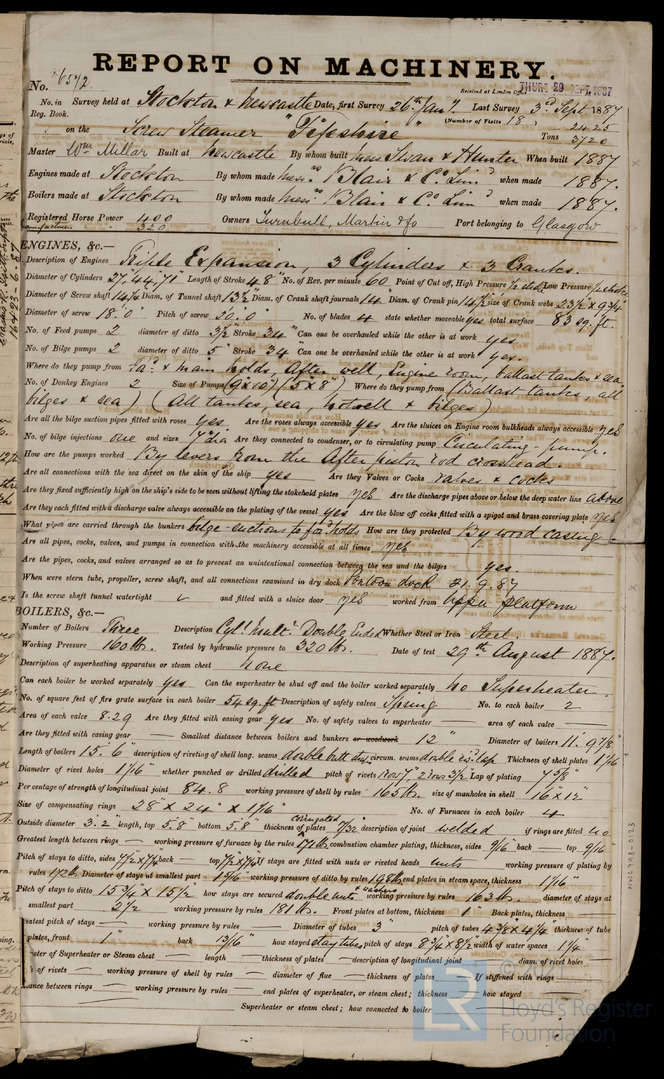 REPORT ON MACHINERY.
No. 6572
Received at London Office THURS 29 SEPT, 1887
No. in Survey held at Stockton & Newcastle Date, first Survey 26th Jany Last Survey 3rd Sept 1887
Reg. Book. (Number of Visits 18)
on the Screw Steamer "Fifeshire" Tons 2425 3720
Master Wm Millar Built at Newcastle By whom built Messrs Swan & Hunter When built 1887
Engines made at Stockton By whom made Messrs Blair & Co. Limd when made 1887.
Boilers made at Stockton By whom made Messrs Blair & Co. Limd when made 1887.
Registered Horse Power 400 Owners Turnbull, Martin & Co Port belonging to Glasgow
320
ENGINES, &c.—
Description of Engines Triple Expansion, 3 Cylinders & 3 Cranks.
Diameter of Cylinders 27, 44, 71" Length of Stroke 48" No. of Rev. per minute 60 Point of Cut off, High Pressure Low Pressure
Diameter of Screw shaft 14 1/4 Diam. of Tunnel shaft 13 1/2 Diam. of Crank shaft journals 14" Diam. of Crank pin 14 1/2" size of Crank webs 23 1/2 x 9 3/4
Diameter of screw 18.0" Pitch of screw 20.0" No. of blades 4 state whether moveable yes total surface 83 sq. ft.
No. of Feed pumps 2 diameter of ditto 3 1/2" Stroke 34" Can one be overhauled while the other is at work yes
No. of Bilge pumps 2 diameter of ditto 5" Stroke 34" Can one be overhauled while the other is at work yes.
Where do they pump from Ford & main holds, After well, Engine room, ballast tanks & sea,
No. of Donkey Engines 2 Size of Pumps (9 x 10) (5 x 8") Where do they pump from (Ballast tanks, all
bilges & sea) (All tanks, sea, hotwell & bilges)
Are all the bilge suction pipes fitted with roses yes. Are the roses always accessible yes Are the sluices on Engine room bulkheads always accessible yes
No. of bilge injections one and sizes 7" dia Are they connected to condenser, or to circulating pump Circulating pump.
How are the pumps worked By levers from the After piston rod crosshead
Are all connections with the sea direct on the skin of the ship yes Are they Valves or Cocks valves & cocks
Are they fixed sufficiently high on the ship's side to be seen without lifting the stokehold plates yes Are the discharge pipes above or below the deep water line above
Are they each fitted with a discharge valve always accessible on the plating of the vessel yes Are the blow off cocks fitted with a spigot and brass covering plate yes
What pipes are carried through the bunkers bilge suctions to ford holds How are they protected By wood casing
Are all pipes, cocks, valves, and pumps in connection with the machinery accessible at all times yes
Are the pipes, cocks, and valves arranged so as to prevent an unintentional connection between the sea and the bilges yes.
When were stern tube, propeller, screw shaft, and all connections examined in dry dock Pontoon dock 21.9.87
Is the screw shaft tunnel watertight ✓ and fitted with a sluice door yes worked from Upper platform
BOILERS, &c.—
Number of Boilers Three Description Cyl. Mult. Double Ended Whether Steel or Iron Steel
Working Pressure 160 lb. Tested by hydraulic pressure to 320 lb. Date of test 29th August 1887.
Description of superheating apparatus or steam chest none
Can each boiler be worked separately yes Can the superheater be shut off and the boiler worked separately no Superheater.
No. of square feet of fire grate surface in each boiler 54 sq. ft Description of safety valves Spring No. to each boiler 2
Area of each valve 8.29 Are they fitted with easing gear yes No. of safety valves to superheater — area of each valve —
Are they fitted with easing gear — Smallest distance between boilers and bunkers or woodwork 12" Diameter of boilers 11'. 9 7/8"
Length of boilers 15'. 6" description of riveting of shell long. seams double butt strap circum. seams double riv. lap Thickness of shell plates 1 1/16"
Diameter of rivet holes 1 1/16" whether punched or drilled drilled pitch of rivets Lap of plating 7 5/8"
Per centage of strength of longitudinal joint 84.8 working pressure of shell by rules 165 lb. size of manholes in shell 16" x 12"
Size of compensating rings 28" x 24" x 1 1/16" No. of Furnaces in each boiler 4
Outside diameter 3'. 2" length, top 5'. 8" bottom 5'. 8" thickness of plates corrugated 17/32" description of joint welded if rings are fitted no
Greatest length between rings — working pressure of furnace by the rules 172 lb combustion chamber plating, thickness, sides 9/16" back — top 9/16"
Pitch of stays to ditto, sides 7 1/2 x 7 1/4 back — top 7 1/2 x 7 1/4 If stays are fitted with nuts or riveted heads nuts working pressure of plating by
rules 172 lb. Diameter of stays at smallest part 1 9/16 working pressure of ditto by rules 198 lb end plates in steam space, thickness 1 1/16"
Pitch of stays to ditto 15 3/4" x 15 1/2" how stays are secured double nuts & washers working pressure by rules 163 lb. diameter of stays at
smallest part 2 1/2 working pressure by rules 181 lb. Front plates at bottom, thickness 1" Back plates, thickness —
eatest pitch of stays — working pressure by rules — Diameter of tubes 3" pitch of tubes 4 3/8 x 4 1/4 thickness of tube
plates, front 1" back 13/16" how stayed stay tubes pitch of stays 8 3/4 x 8 1/2 width of water spaces 1 1/4"
eter of Superheater or Steam chest — length — thickness of plates — description of longitudinal joint — diam. of rivet holes —
h of rivets — working pressure of shell by rules — diameter of flue — thickness of plates — If stiffened with rings —
tance between rings — working pressure by rules — end plates of superheater, or steam chest; thickness — how stayed —
Superheater or steam chest; how connected to boiler —
Lloyd's Register
Foundation